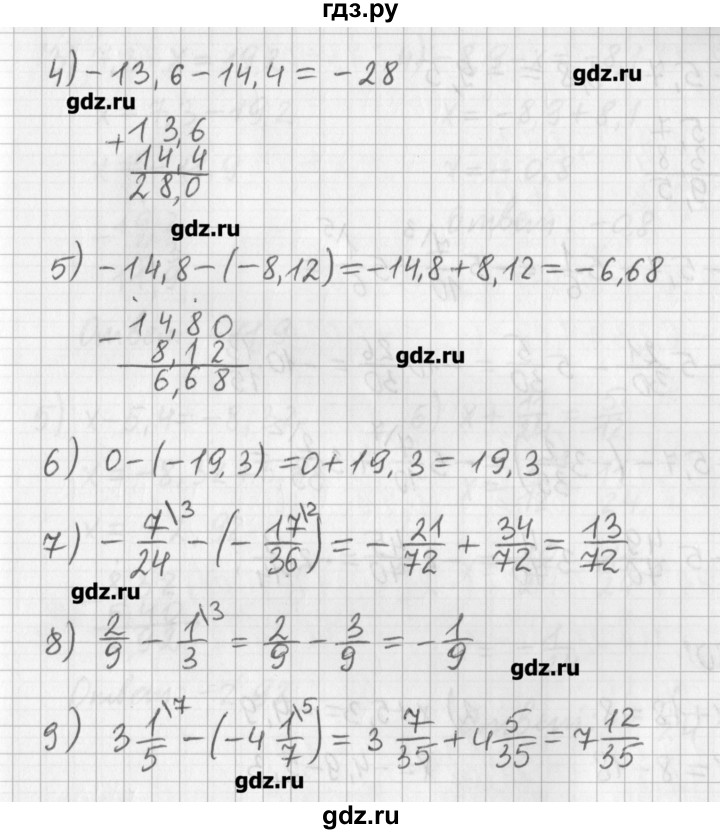 гдз.ру
4) -13,6 - 14,4 = -28
gdz.ru
gdz.ru
+ 13,6
14,4
28,0
gdz.ru
5) -14,8 - (-8,12) = -14,8 + 8,12 = -6,68
- 14,80
8,12
gdz.ru
6,68
6) 0 - (-19,3) = 0 + 19,3 = 19,3
7) - 7\3/24 - (- 17\2/36) = - 21/72 + 34/72 = 13/72
gdz.ru
8) 2/9 - 1\3/3 = 2/9 - 3/9 = - 1/9
gdz.ru
9) 3 1\7/5 - (-4 1\5/7) = 3 7/35 + 4 5/35 = 7 12/35
gdz.ru
gdz.ru